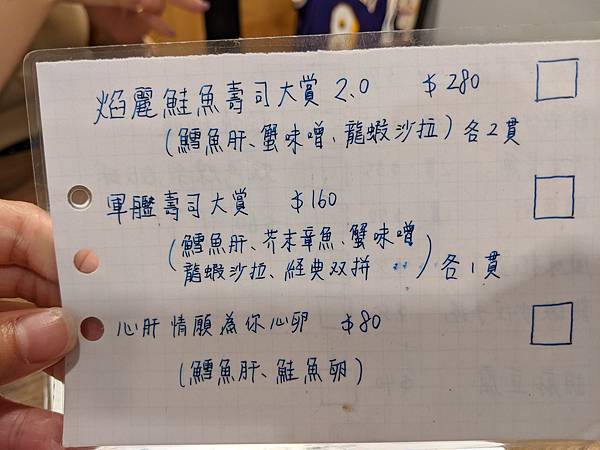 焰麗鮭魚壽司大賞 2.0 $280
(鱈魚肝、蟹味噌、龍蝦沙拉) 各2貫
軍艦壽司大賞 $160
(鱈魚肝、芥末章魚、蟹味噌
龍蝦沙拉、経典双拼) 各1貫
心肝情願為你心卵 $80
(鱈魚肝、鮭魚卵)